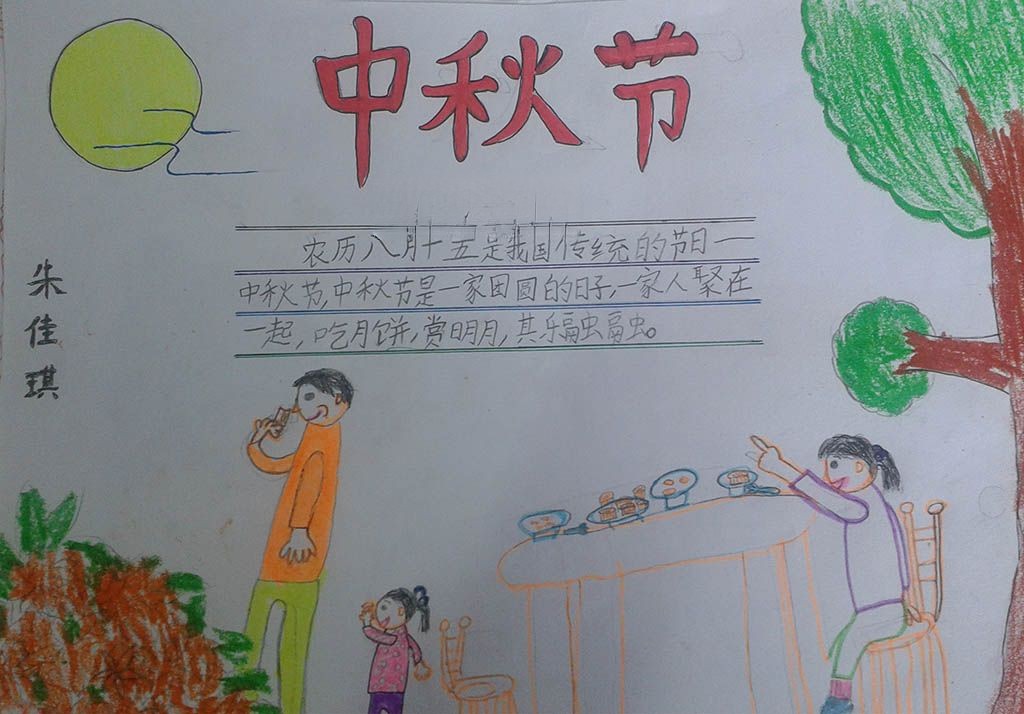 中秋节
农历八月十五是我国传统的节日一
中秋节,中秋节是一家团圆的日子,一家人聚在
一起,吃月饼,赏明月,其乐融融。
朱佳琪